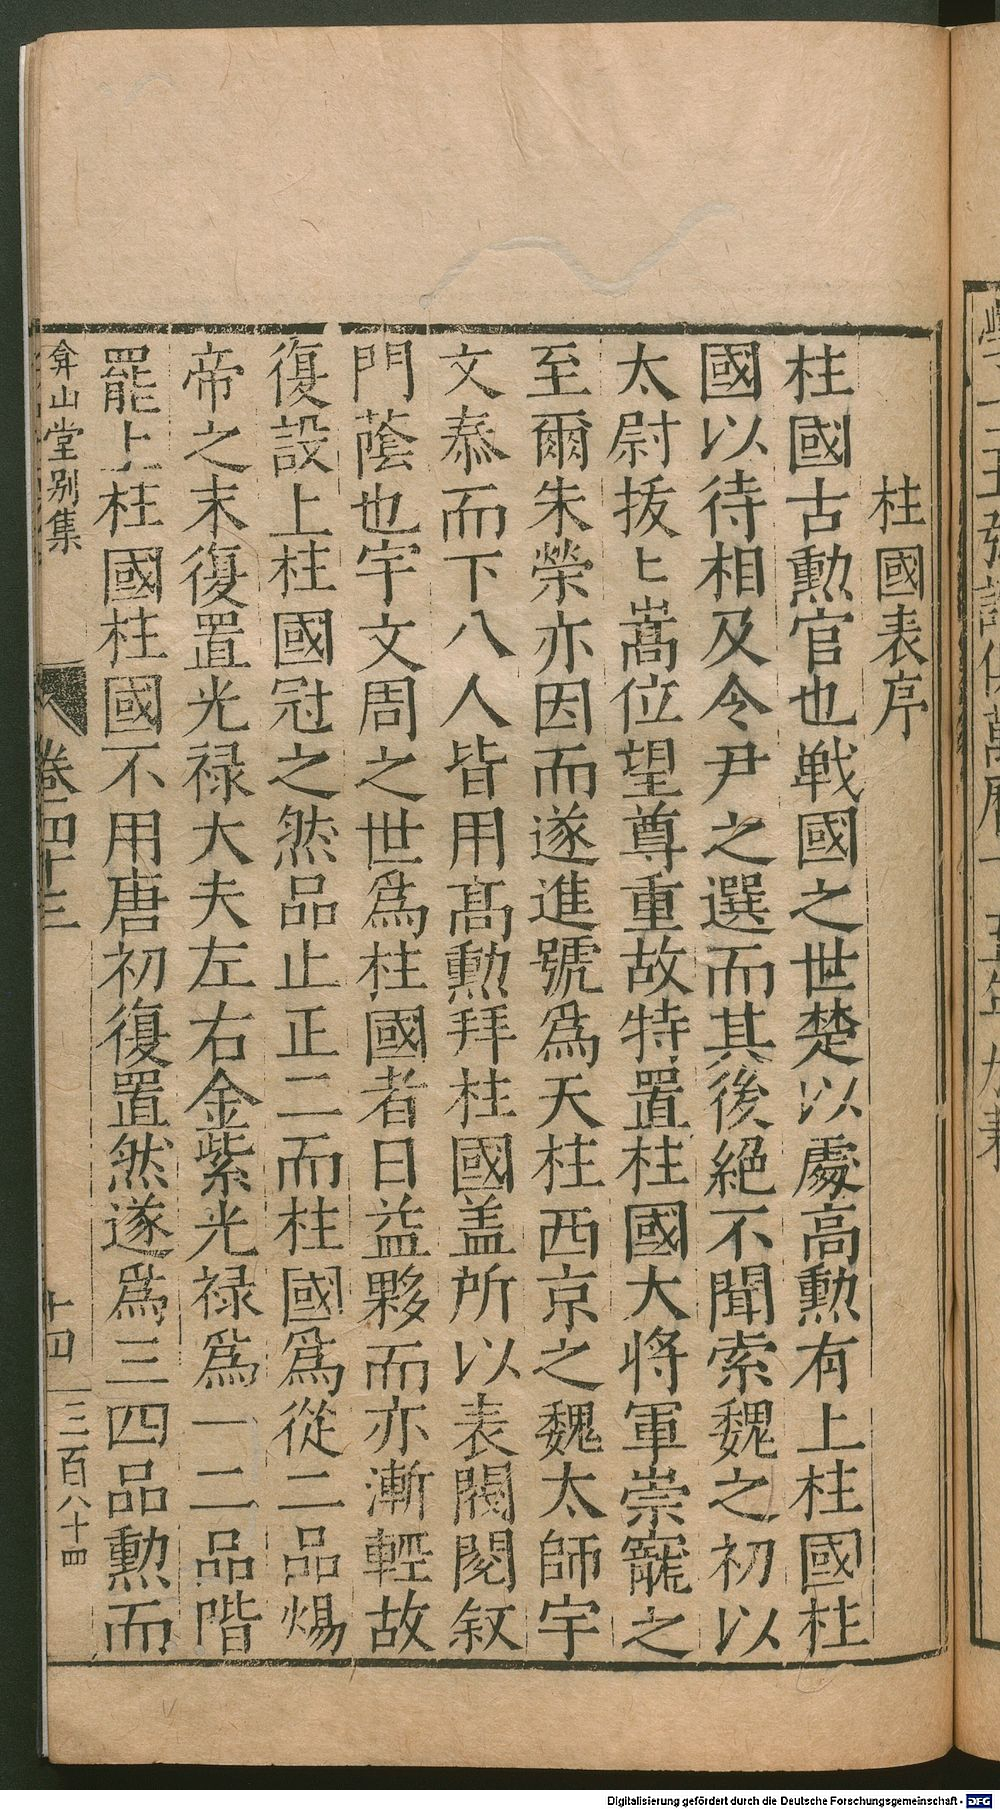 柱國表序
柱國古勳官也戦國之世楚以處高勲有上柱國柱
國以待相及令尹之選而其後絕不聞索魏之初以
太尉拔匕嵩位望尊重故特置柱國大将軍崇寵之
至爾朱榮亦因而遂進號為天柱西京之魏太師宇
文泰而下八人皆用髙勲拜柱國盖所以表閥閱叙
門蔭也宇文周之世為柱國者日益夥而亦漸輕故
復設上柱國冠之然品止正二而柱國為從二品煬
帝之末復置光禄大夫左右金紫光禄為一二品階
罷上柱國柱國不用唐初復置然遂為三四品勲而
弇山堂别集
卷四十三
十四
三百八十四
Digitalisierung gefördert durch die Deutsche Forschungsgemeinschaft - DFG